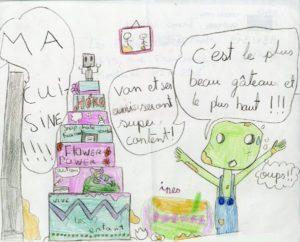 MA
CUI-
SINE
!!!!
Van et ses
amis seront
super
content!
C'est le plus
beau gâteau et
le plus haut !!!
Oups!!
HERO
FLOWER
POWER
ines
VIVE
les
enfant